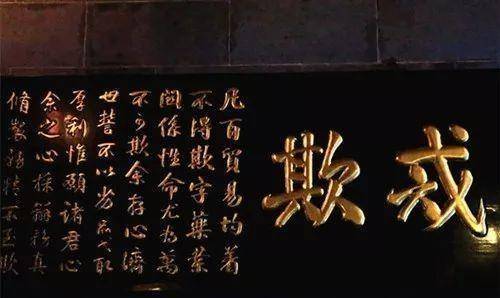 戒欺
凡百貿易均着
不得欺字藥業
關係性命尤為萬
不可欺余存心濟
世誓不以劣品弋取
厚利惟願諸君心
余之心採辦務真
脩製務精不至欺